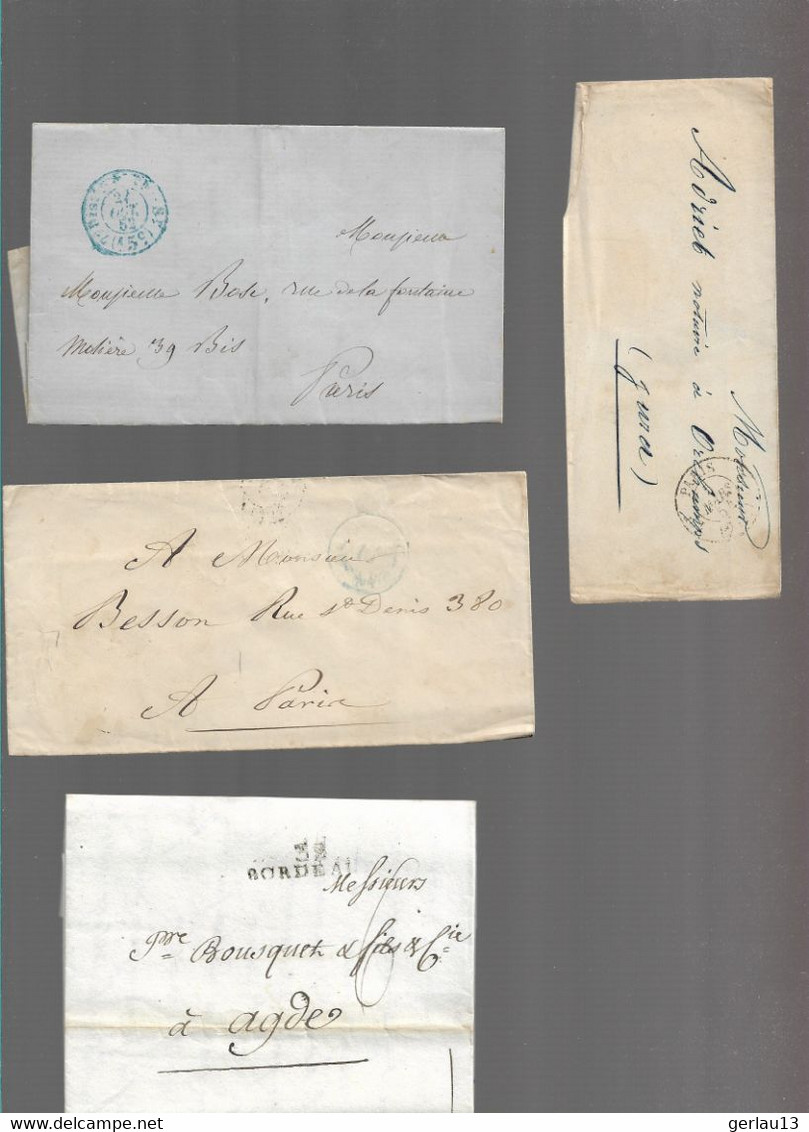 21
OCT.
52
Monsieur
Monsieur Bose, rue de la fontaine
Molière 39 Bis
Paris
Monsieur
Adriet notaire à Orchamps
(jura)
A Monsieur
Besson Rue St Denis 380
A Paris
32
BORDEAU
Messieurs
Pre Bousquet & fils & Cie
à agde
6
delcampe.net
gerlau13